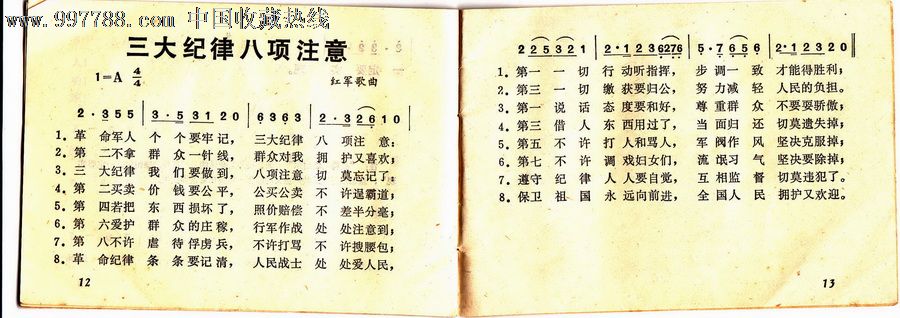 www.997788.com 中国收藏热线
三大纪律八项注意
1=A 4/4
红军歌曲
2·355 | 3·53120 | 6363 | 3·32610 |
1．革 命军人 个 个要牢记， 三大纪律 八 项注 意；
2．第 二不拿 群 众一针线， 群众对我 拥 护又喜欢；
3．三 大纪律 我 们要做到， 八项注意 切 莫忘记了。
4．第 二买卖 价 钱要公平， 公买公卖 不 许逞霸道；
5．第 四若把 东 西损坏了， 照价赔偿 不 差半分毫；
6．第 六爱护 群 众的庄稼， 行军作战 处 处注意到；
7．第 八不许 虐 待俘虏兵， 不许打骂 不 许搜腰包；
8．革 命纪律 条 条要记清， 人民战士 处 处爱人民，
12
225321 | 2·1236276 | 5·7656 | 2·12320 ‖
1．第一 一切 行 动听指挥， 步 调一 致 才能得胜利；
2．第三 一切 缴 获要归公， 努 力减 轻 人民的负担。
3．第一 说话 态 度要和好， 尊 重群 众 不要耍骄傲；
4．第三 借人 东 西用过了， 当 面归 还 切莫遗失掉；
5．第五 不许 打 人和骂人， 军 阀作 风 坚决克服掉；
6．第七 不许 调 戏妇女们， 流 氓习 气 坚决要除掉；
7．遵守 纪律 人 人要自觉， 互 相监 督 切莫违犯了。
8．保卫 祖国 永 远向前进， 全 国人 民 拥护又欢迎。
13